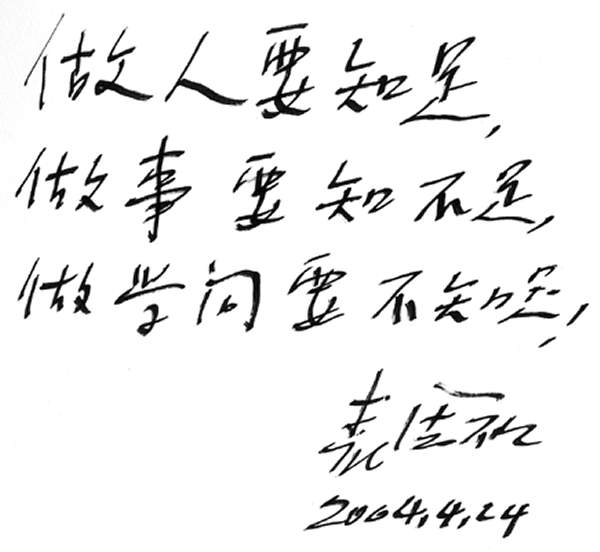 做人要知足,
做事要知不足,
做学问要不知足!
裘法祖
2004.4.24